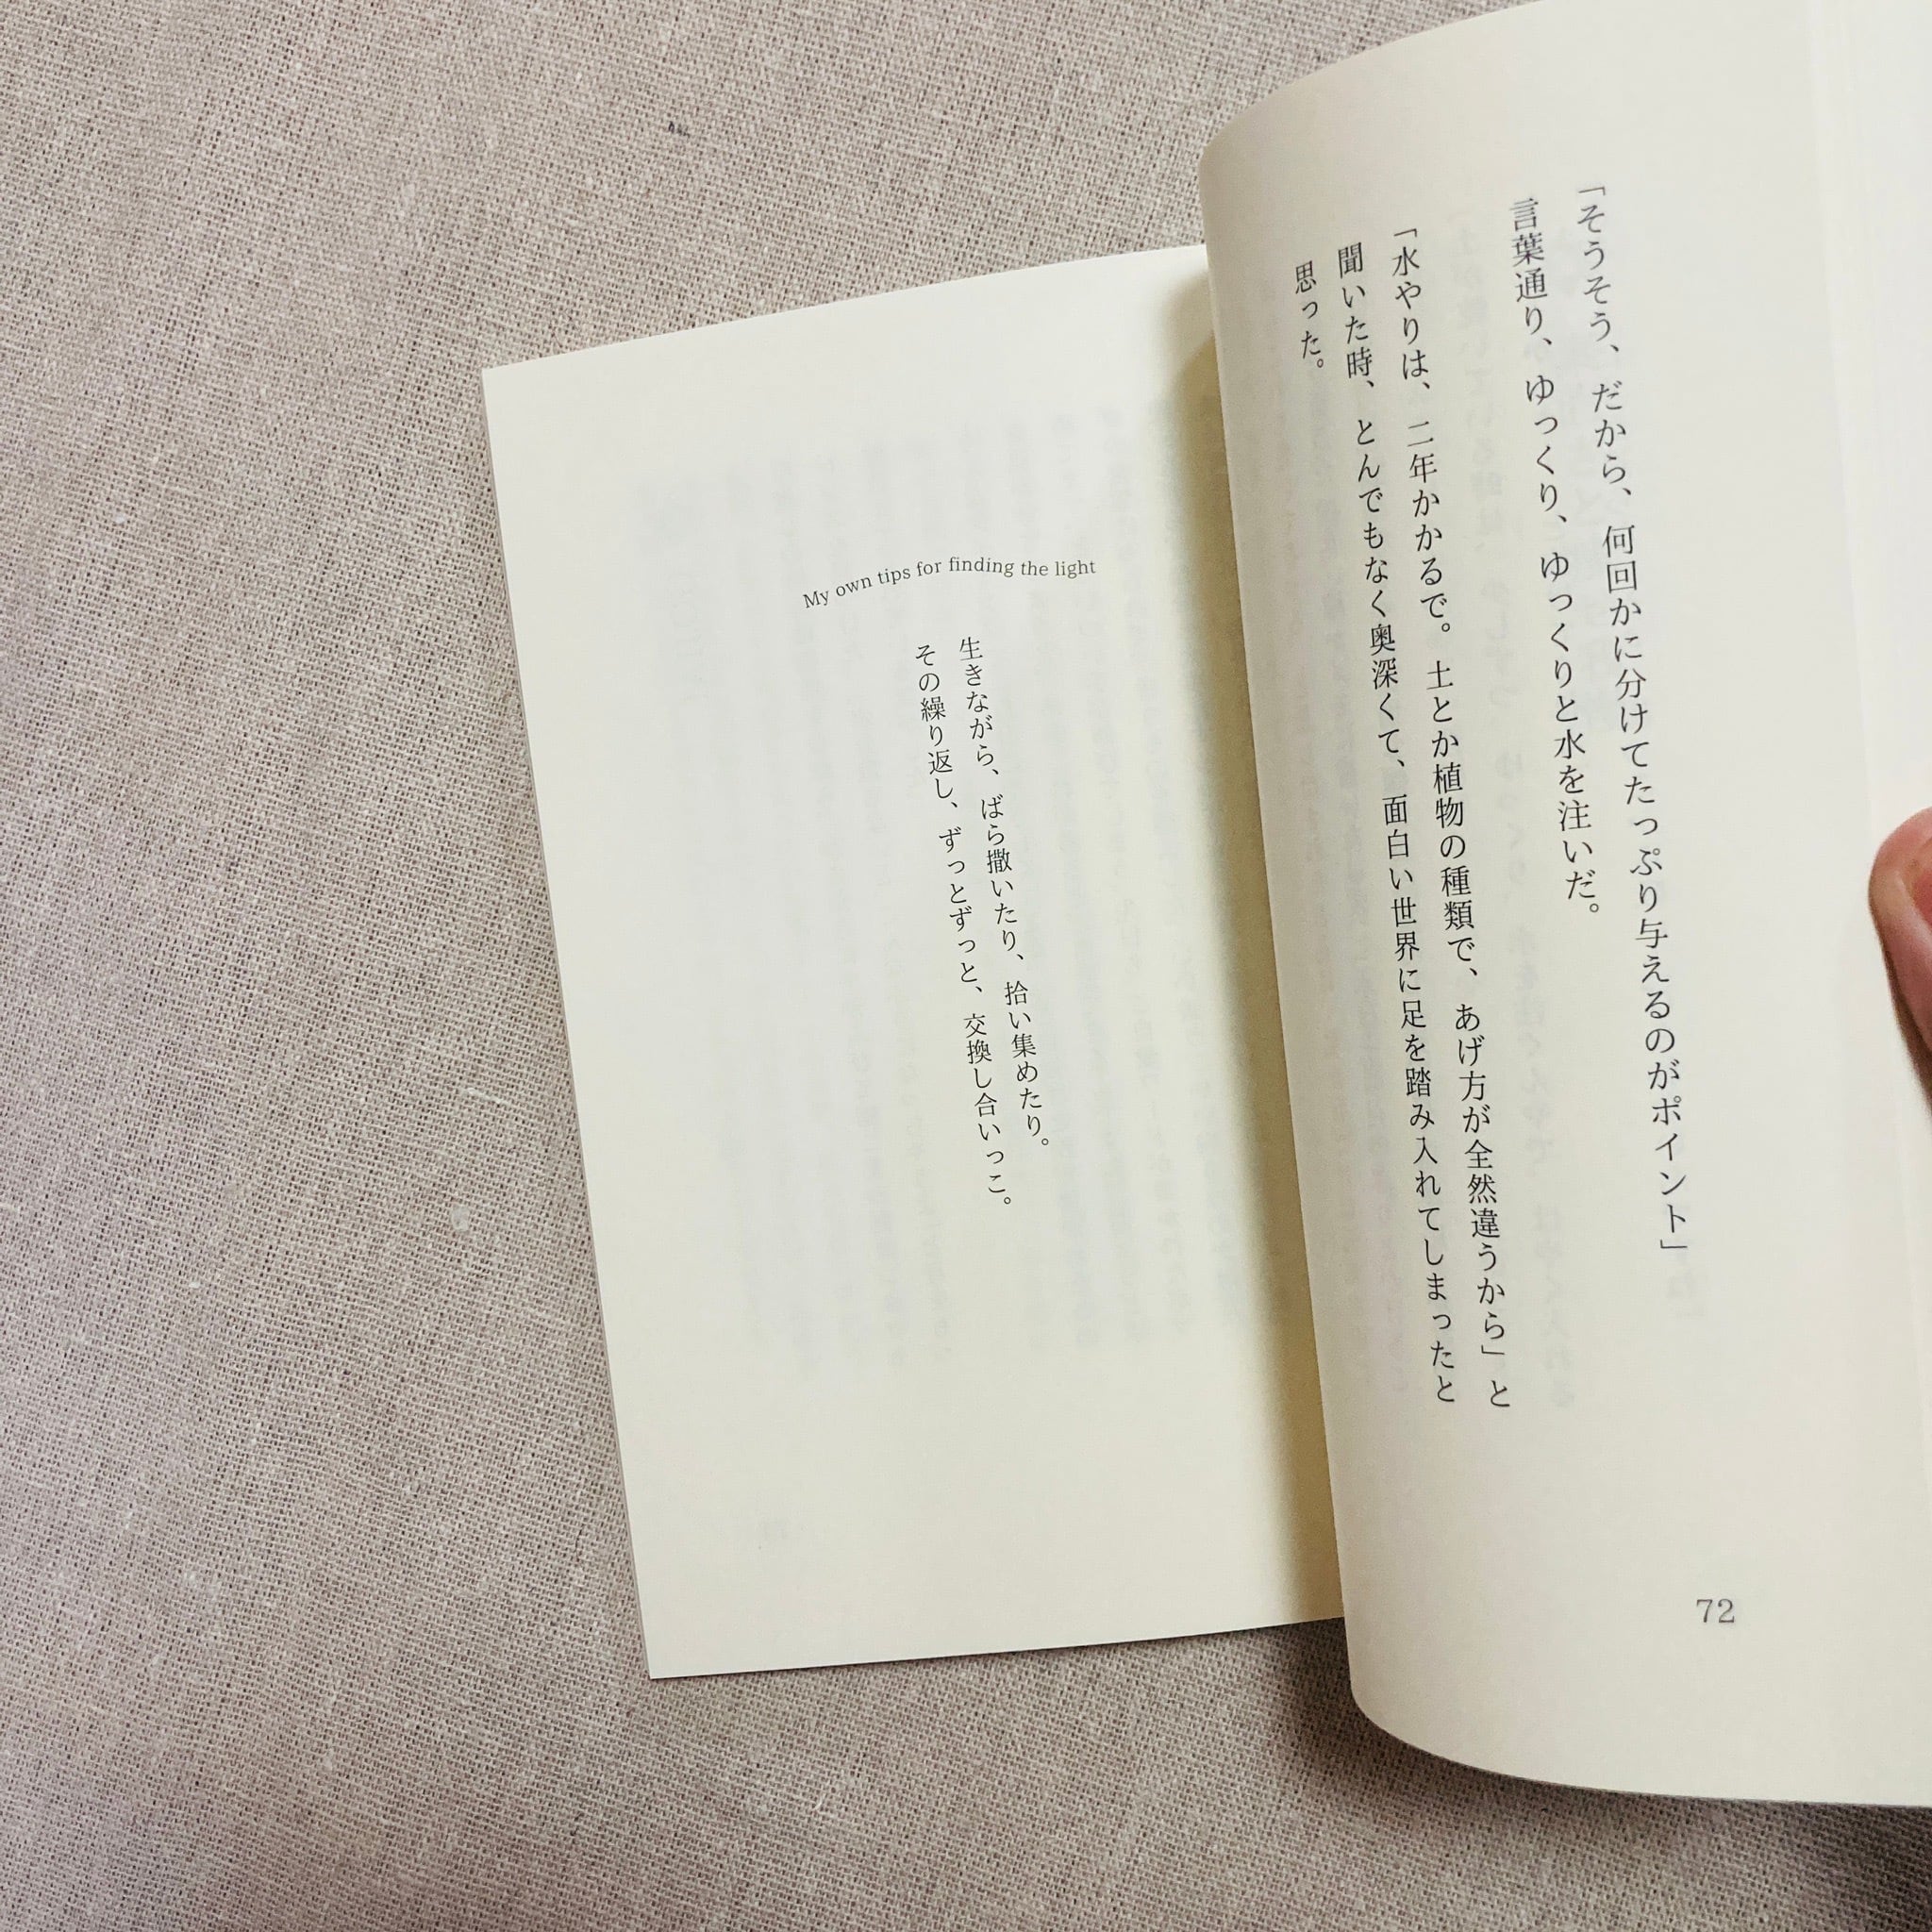 「そうそう、だから、何回かに分けてたっぷり与えるのがポイント」
言葉通り、ゆっくり、ゆっくりと水を注いだ。
「水やりは、二年かかるで。土とか植物の種類で、あげ方が全然違うから」と
聞いた時、とんでもなく奥深くて、面白い世界に足を踏み入れてしまったと
思った。
72
My own tips for finding the light
生きながら、ばら撒いたり、拾い集めたり。
その繰り返し、ずっとずっと、交換し合いっこ。